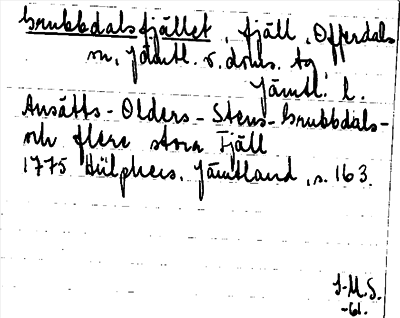 Grubbdalsfjället, fjäll, Offerdals
sn, Jämtl. n. dms. tg
Jämtl. l.
Ansätts- Olders- Stens- Grubbdals-
och flere stora Fjäll
1775 Hülphers, Jämtland, s. 163.
I-M.S.
-61.